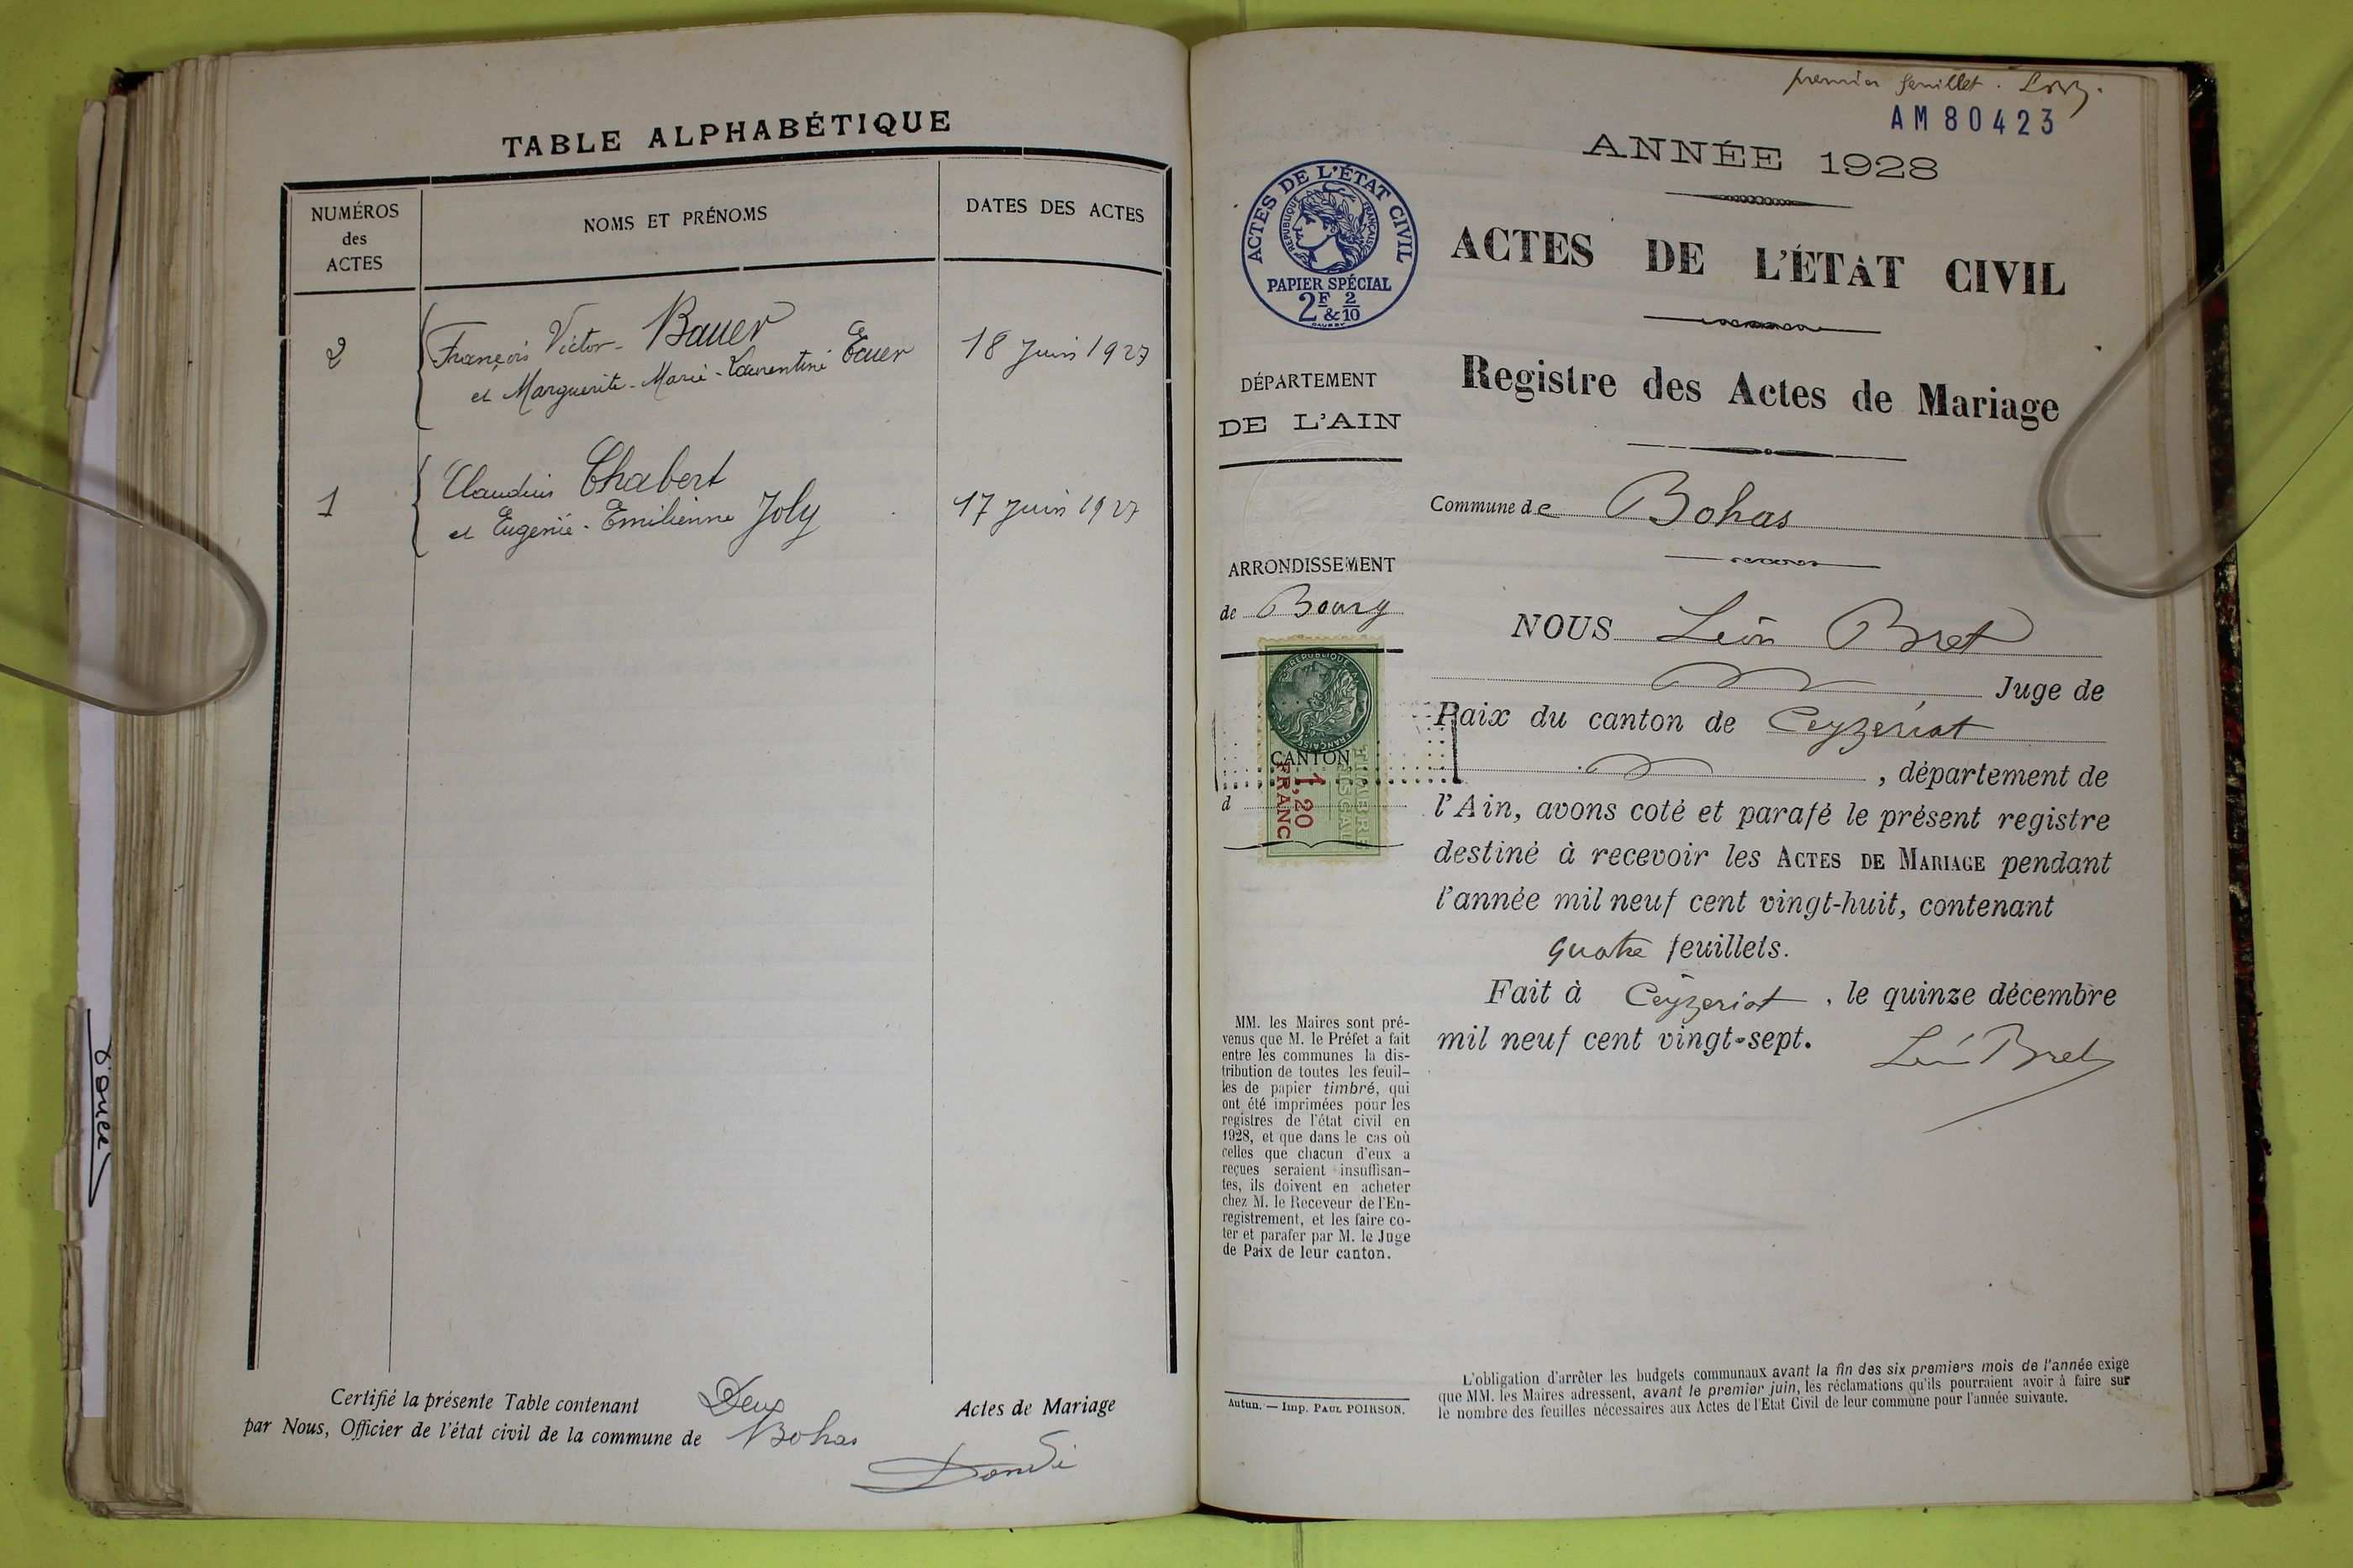 TABLE ALPHABÉTIQUE
NUMÉROS
des
ACTES
NOMS ET PRÉNOMS
DATES DES ACTES
2
François Victor - Bauer
et Marguerite - Marie - Laurentine Ecuer
18 Juin 1927
1
Claudius Chabert
et Eugénie - Emilienne Joly
17 Juin 1927
Certifié la présente Table contenant Deux Actes de Mariage
par Nous, Officier de l'état civil de la commune de Bohas
premier feuillet.
AM80423
ANNÉE 1928
ACTES DE L'ÉTAT CIVIL
RÉPUBLIQUE FRANÇAISE
PAPIER SPÉCIAL
2F & 2/10
ACTES DE L'ÉTAT CIVIL
Registre des Actes de Mariage
DÉPARTEMENT
DE L'AIN
Commune de Bohas
ARRONDISSEMENT
de Bourg
RÉPUBLIQUE FRANÇAISE
TIMBRE
FISCAL
1,20
FRANC
CANTON
d
NOUS Léon Bret
Juge de
Paix du canton de Ceyzériat
, département de
l'Ain, avons coté et parafé le présent registre
destiné à recevoir les ACTES DE MARIAGE pendant
l'année mil neuf cent vingt-huit, contenant
quatre feuillets.
Fait à Ceyzeriat, le quinze décembre
mil neuf cent vingt-sept.
Léon Bret
MM. les Maires sont pré-
venus que M. le Préfet a fait
entre les communes la dis-
tribution de toutes les feuil-
les de papier timbré, qui
ont été imprimées pour les
registres de l'état civil en
1928, et que dans le cas où
celles que chacun d'eux a
reçues seraient insuffisan-
tes, ils doivent en acheter
chez M. le Receveur de l'En-
registrement, et les faire co-
ter et parafer par M. le Juge
de Paix de leur canton.
Autun. — Imp. PAUL POIRSON.
L'obligation d'arrêter les budgets communaux avant la fin des six premiers mois de l'année exige
que MM. les Maires adressent, avant le premier juin, les réclamations qu'ils pourraient avoir à faire sur
le nombre des feuilles nécessaires aux Actes de l'Etat Civil de leur commune pour l'année suivante.